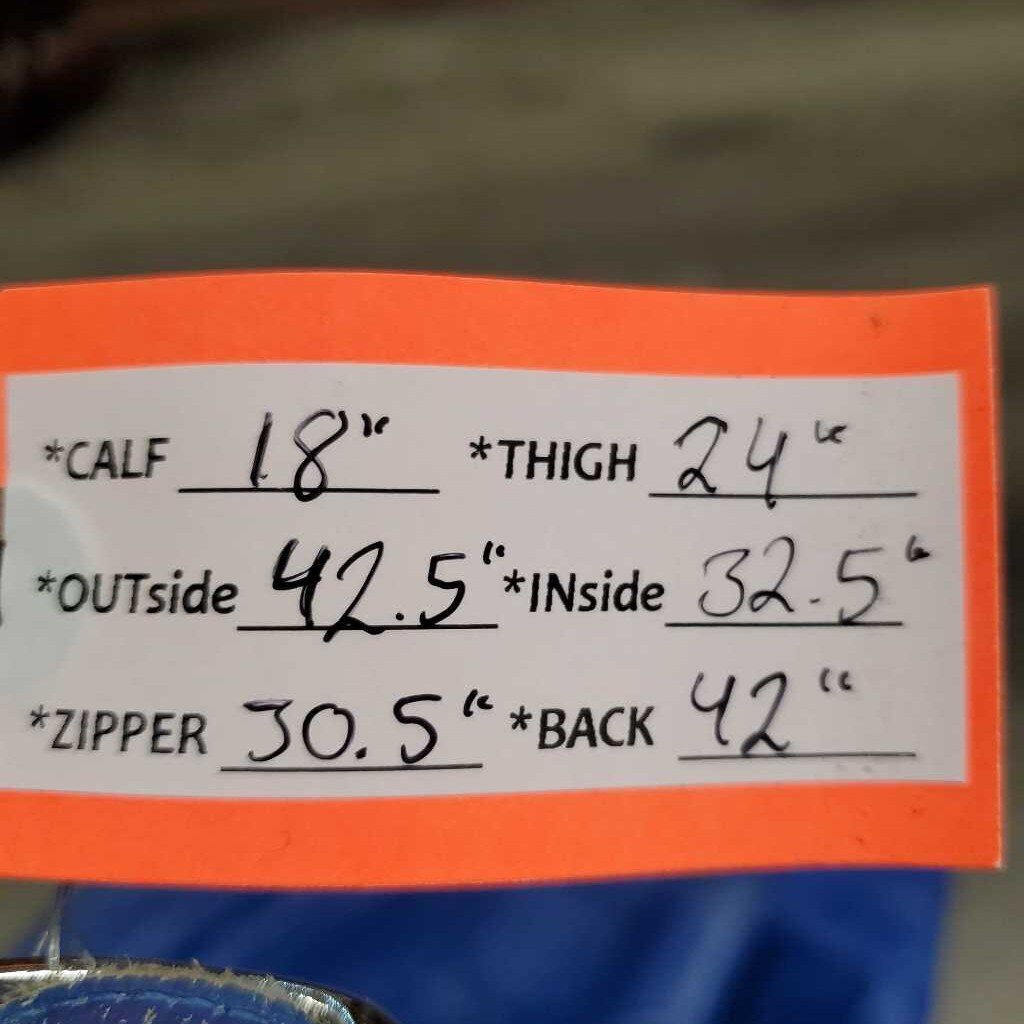 *CALF 18" *THIGH 24"
*OUTside 42.5" *INside 32.5"
*ZIPPER 30.5" *BACK 42"